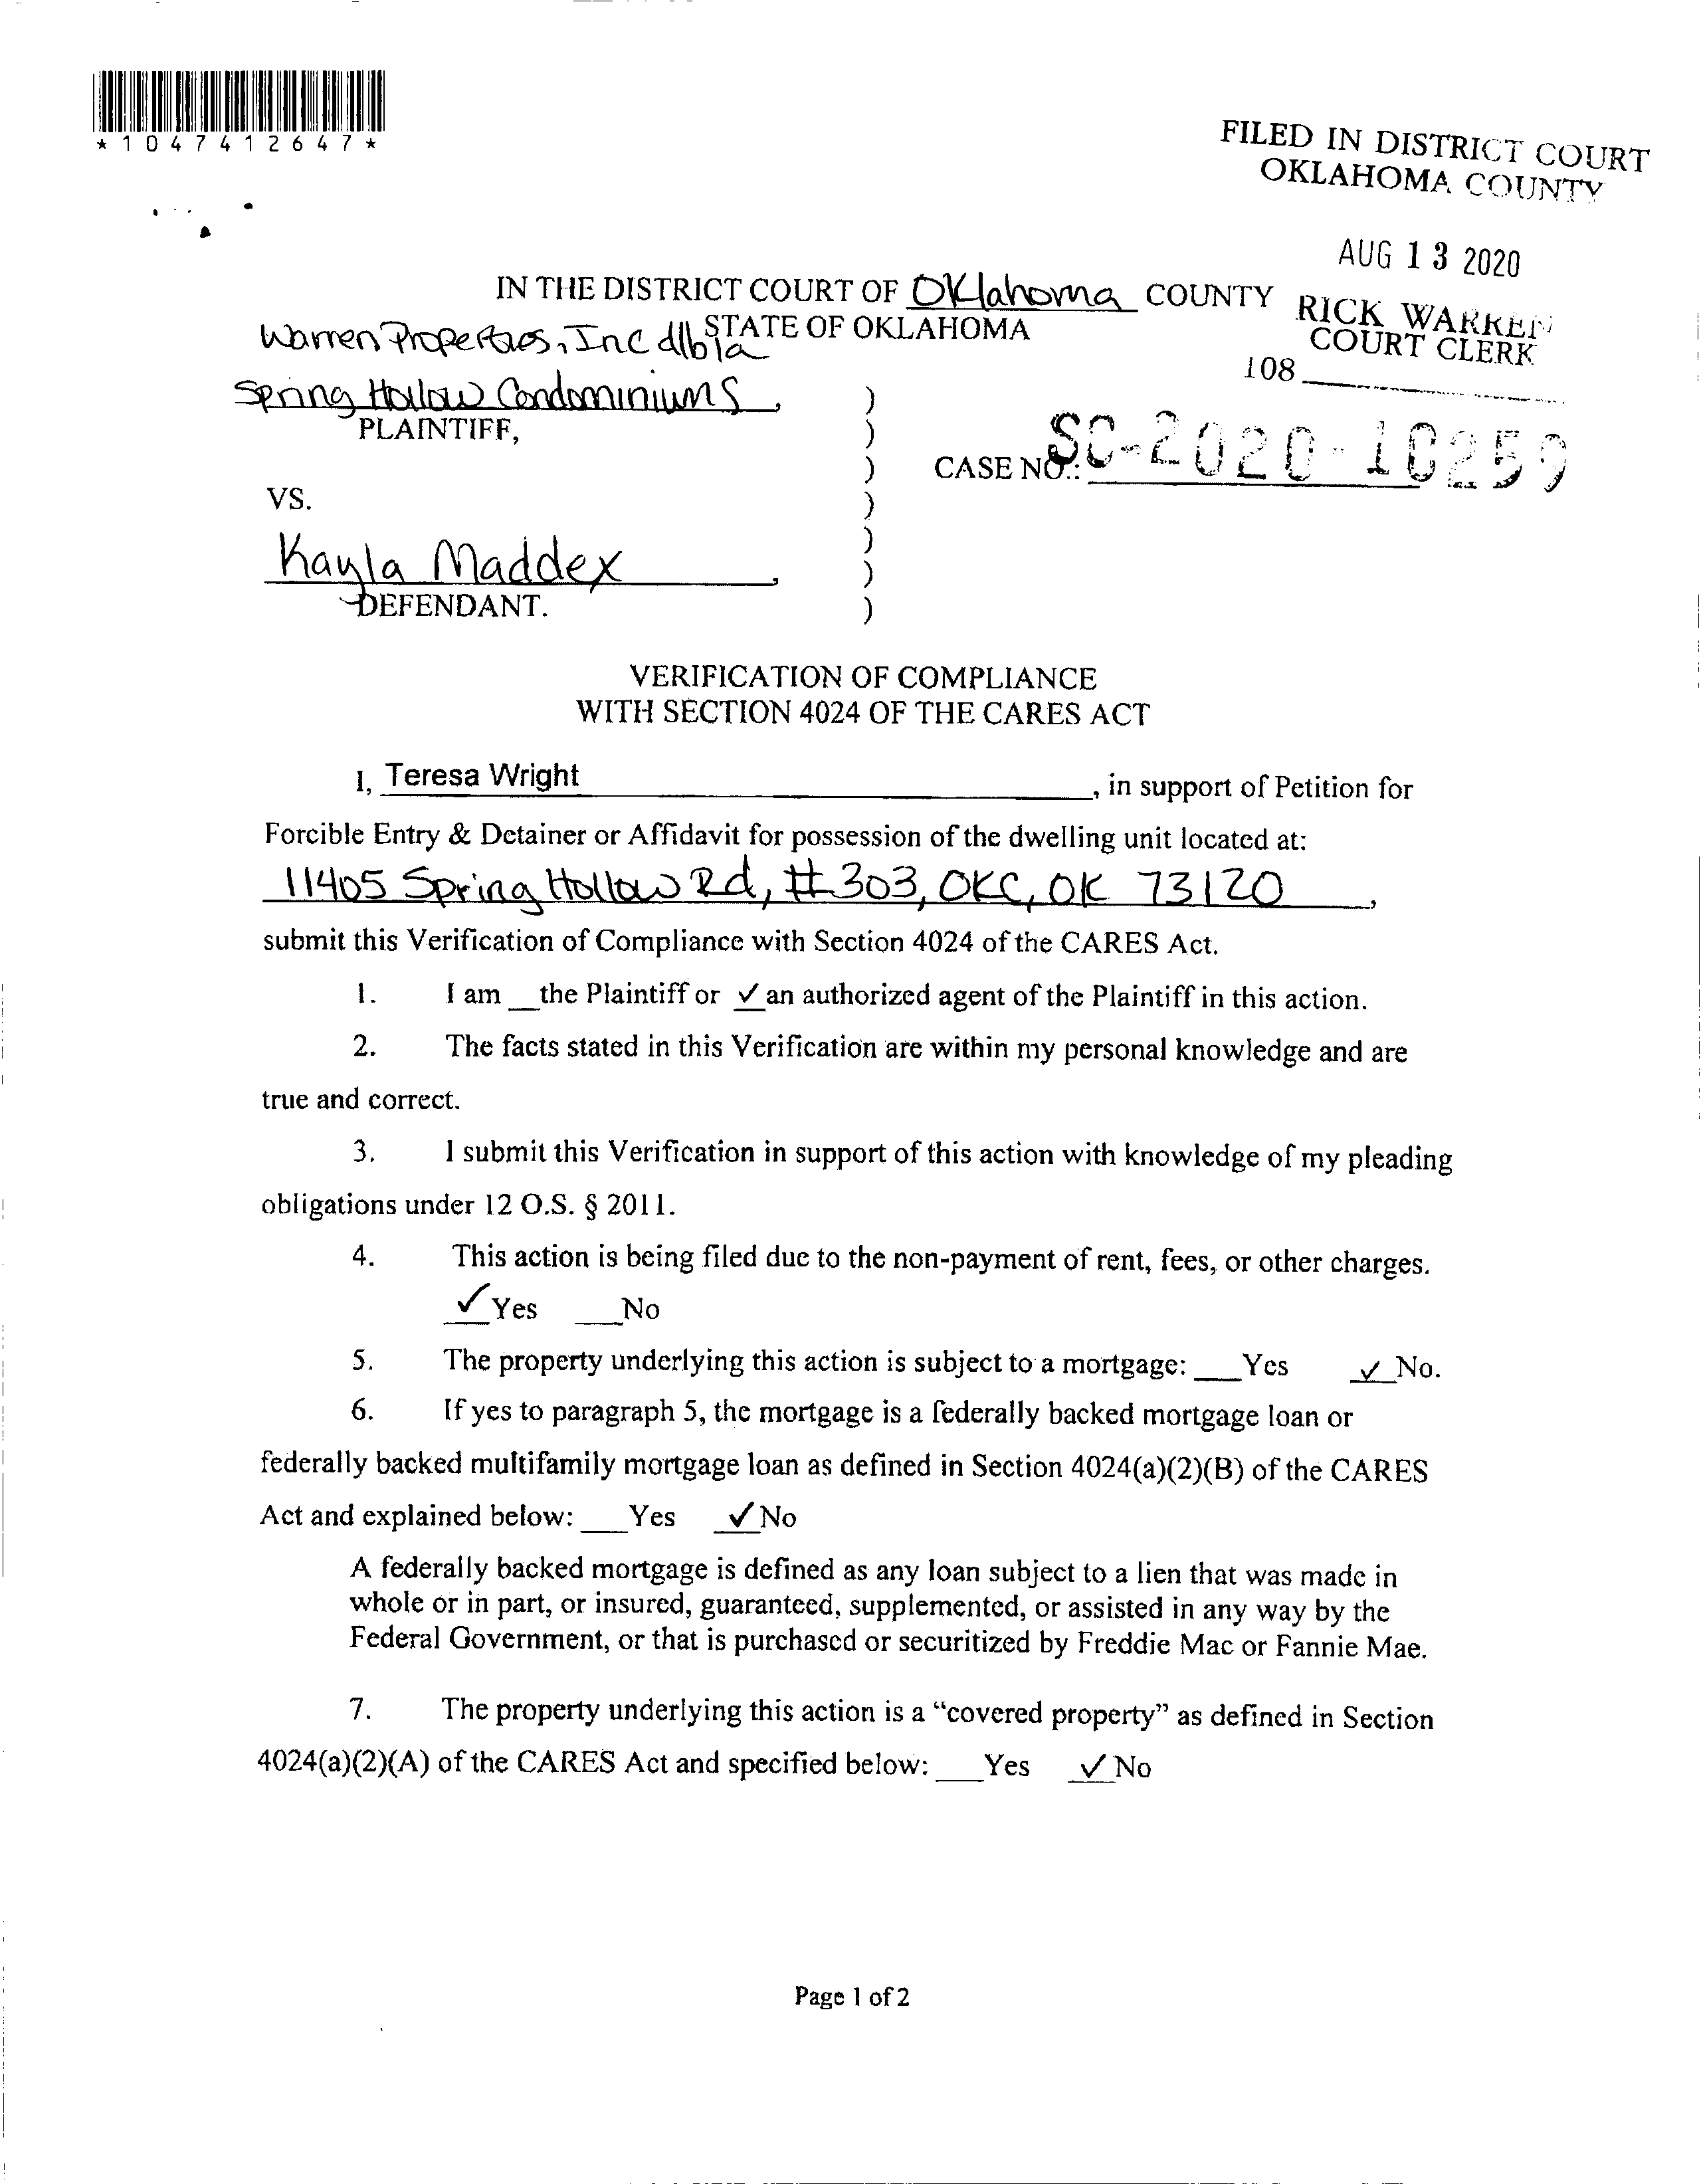 *1047412647*
FILED IN DISTRICT COURT
OKLAHOMA COUNTY
AUG 13 2020
RICK WARREN
COURT CLERK
108
IN THE DISTRICT COURT OF Oklahoma COUNTY
STATE OF OKLAHOMA
Warren Properties, Inc d/b/a
Spring Hollow Condominiums,
PLAINTIFF,
CASE NO.: SC-2020-10259
VS.
Kayla Maddex,
DEFENDANT.
)
)
)
)
)
)
)
VERIFICATION OF COMPLIANCE
WITH SECTION 4024 OF THE CARES ACT
I, Teresa Wright, in support of Petition for
Forcible Entry & Detainer or Affidavit for possession of the dwelling unit located at:
11405 Spring Hollow Rd, #303, OKC, OK 73120,
submit this Verification of Compliance with Section 4024 of the CARES Act.
1. I am __the Plaintiff or ✓ an authorized agent of the Plaintiff in this action.
2. The facts stated in this Verification are within my personal knowledge and are
true and correct.
3. I submit this Verification in support of this action with knowledge of my pleading
obligations under 12 O.S. § 2011.
4. This action is being filed due to the non-payment of rent, fees, or other charges.
✓Yes ___No
5. The property underlying this action is subject to a mortgage: ___Yes ✓ No.
6. If yes to paragraph 5, the mortgage is a federally backed mortgage loan or
federally backed multifamily mortgage loan as defined in Section 4024(a)(2)(B) of the CARES
Act and explained below: ___Yes ✓No
A federally backed mortgage is defined as any loan subject to a lien that was made in
whole or in part, or insured, guaranteed, supplemented, or assisted in any way by the
Federal Government, or that is purchased or securitized by Freddie Mac or Fannie Mae.
7. The property underlying this action is a “covered property” as defined in Section
4024(a)(2)(A) of the CARES Act and specified below: ___Yes ✓No
Page 1 of 2